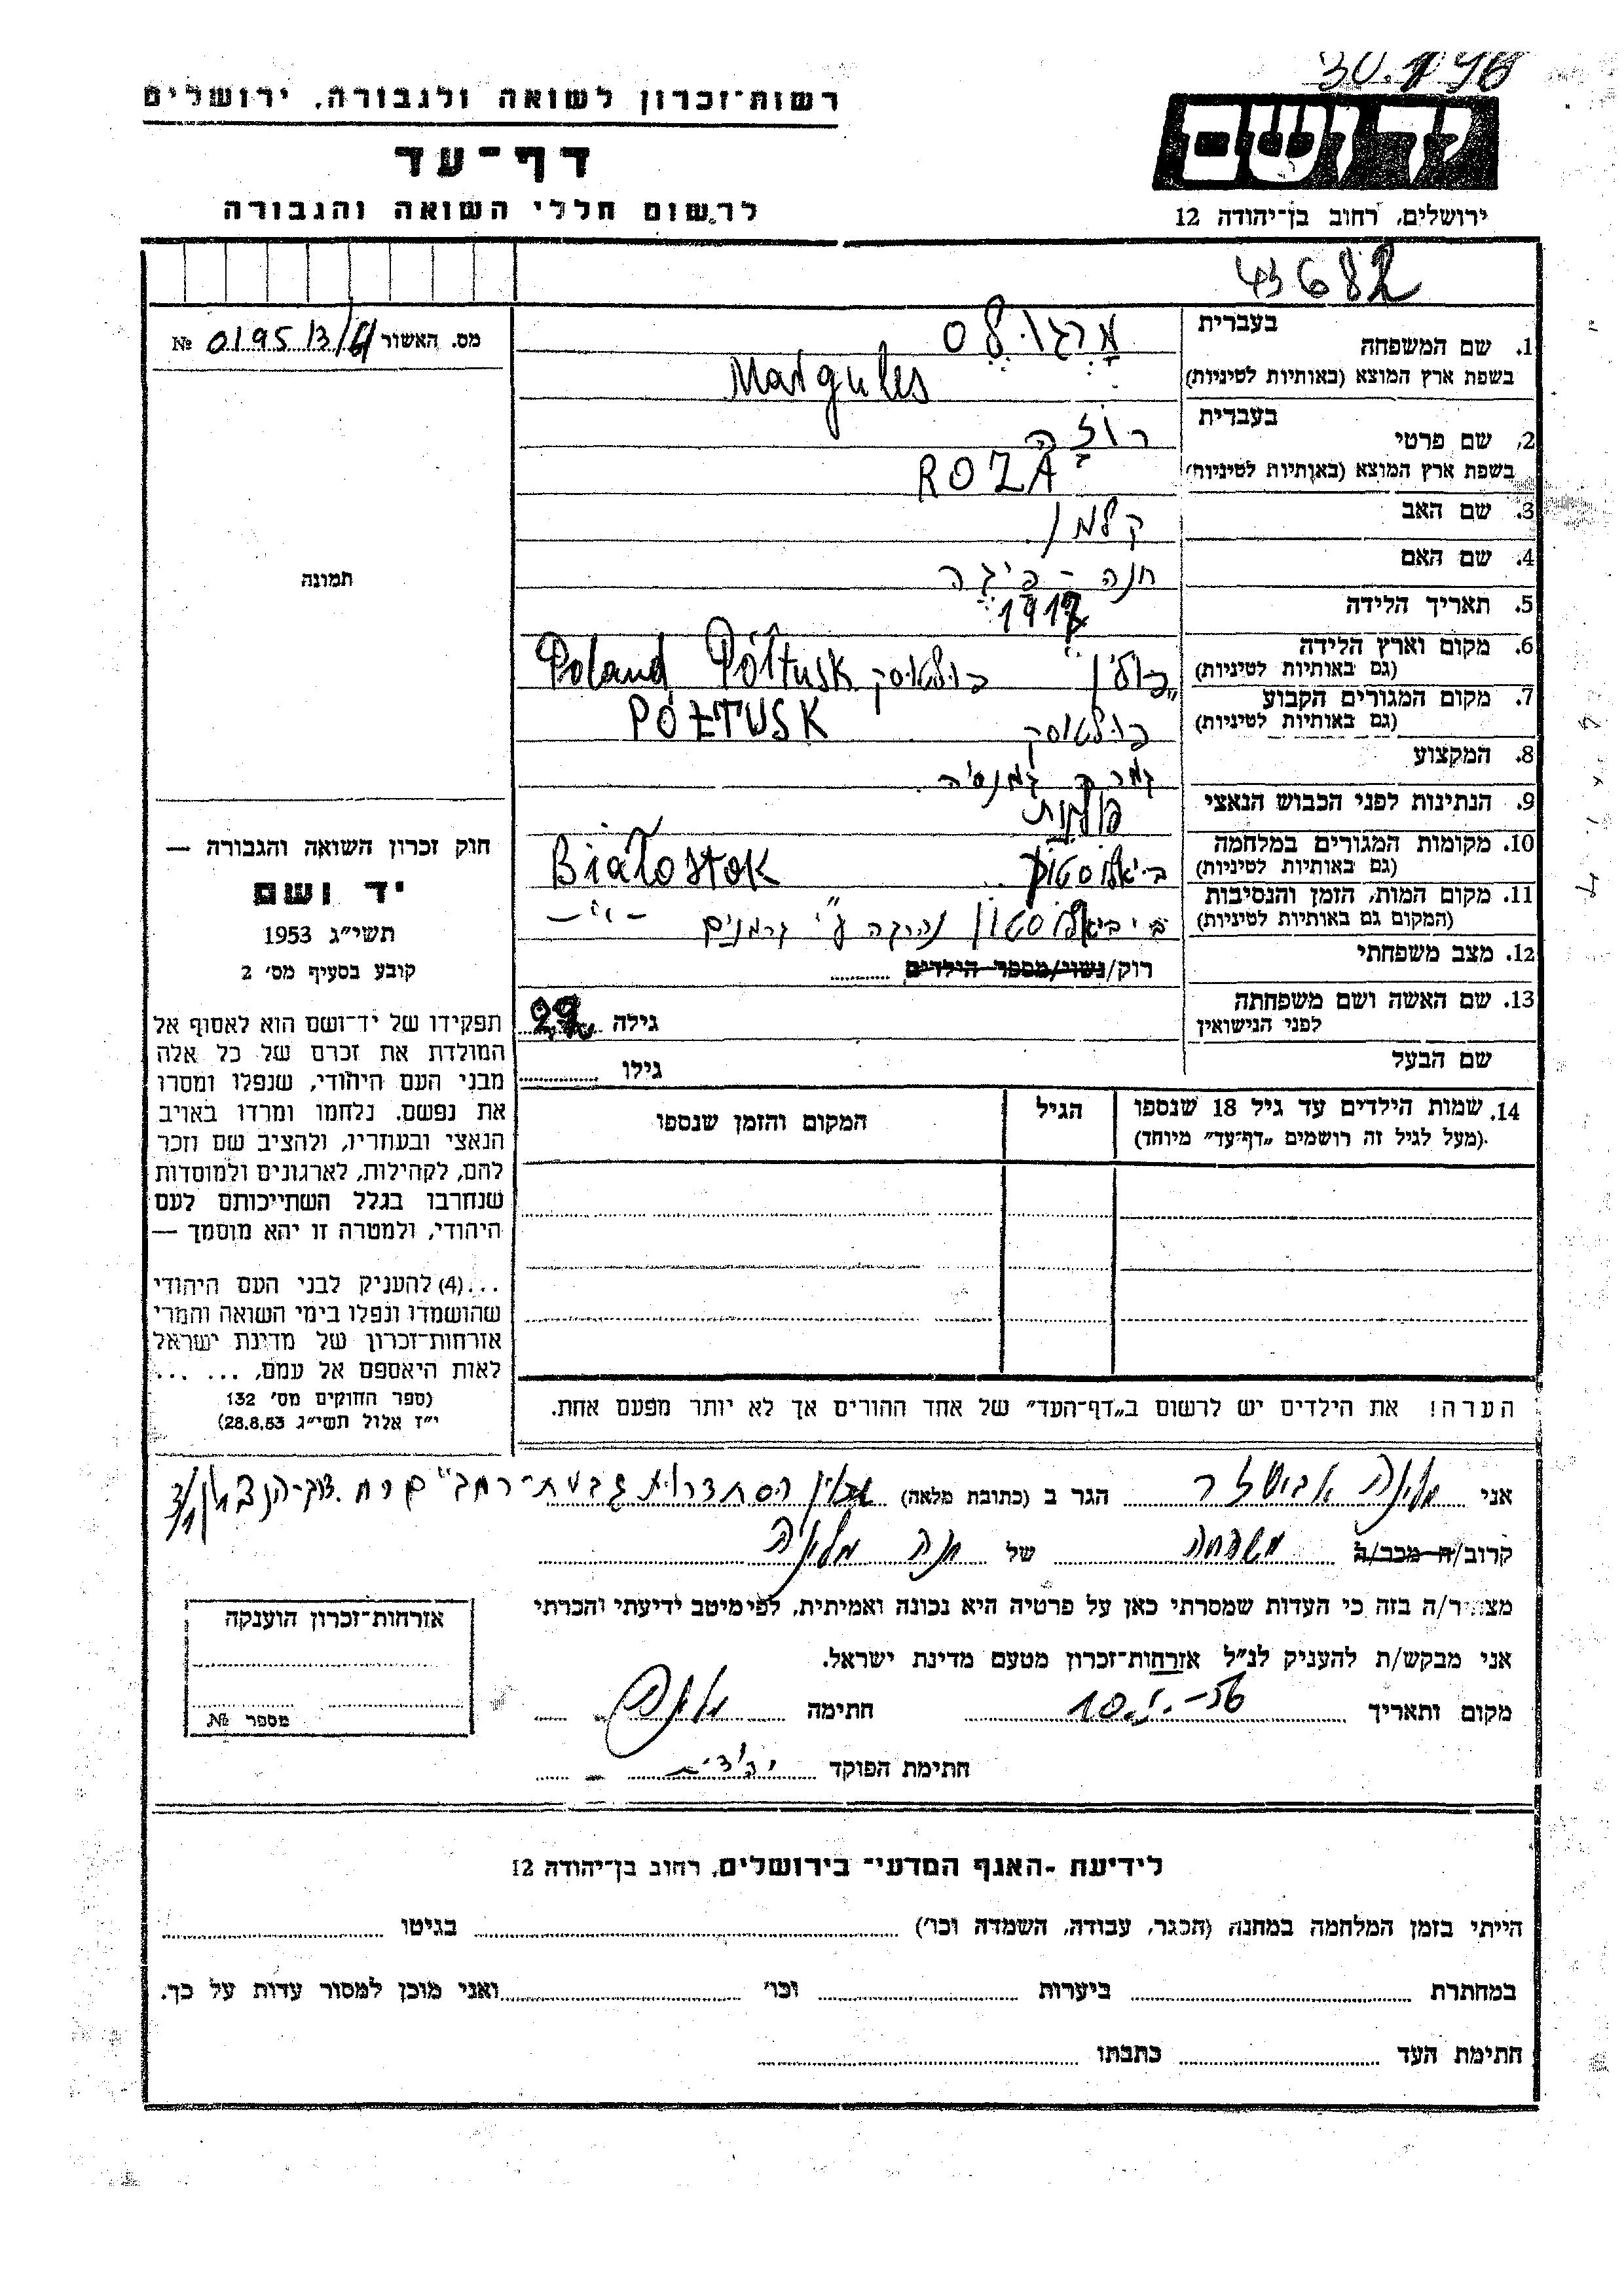 רשות־זכרון לשואה ולגבורה, ירושלים
דף־עד
לרשום חללי השואה והגבורה
יד ושם
ירושלים, רחוב בן־יהודה 12
43682
מס. האשור № 0195
1. שם המשפחה בעברית מרגולס
בשפת ארץ המוצא (באותיות לטיניות) Margules
2. שם פרטי בעברית רוזה
בשפת ארץ המוצא (באותיות לטיניות) ROZA
3. שם האב קלמן
4. שם האם חנה - פיגה
5. תאריך הלידה
6. מקום וארץ הלידה (גם באותיות לטיניות) פולין פולטוסק Półtusk Poland
7. מקום המגורים הקבוע (גם באותיות לטיניות) פולטוסק PÓŁTUSK
8. המקצוע גמרה גמנסיה
9. הנתינות לפני הכבוש הנאצי פולנית
10. מקומות המגורים במלחמה (גם באותיות לטיניות) ביאלוסטוק Białostok
11. מקום המות, הזמן והנסיבות (המקום גם באותיות לטיניות) נהרגה ע"י גרמנים
12. מצב משפחתי רוק/נשוי/מספר הילדים
13. שם האשה ושם משפחתה לפני הנישואין גילה
שם הבעל גילו
14. שמות הילדים עד גיל 18 שנספו הגיל המקום והזמן שנספו
(מעל לגיל זה רושמים „דף־עד” מיוחד)
הערה! את הילדים יש לרשום ב„דף־העד” של אחד ההורים אך לא יותר מפעם אחת.
תמונה
חוק זכרון השואה והגבורה —
יד ושם
תשי״ג 1953
קובע בסעיף מס׳ 2
תפקידו של יד־ושם הוא לאסוף אל
המולדת את זכרם של כל אלה
מבני העם היהודי, שנפלו ומסרו
את נפשם, נלחמו ומרדו באויב
הנאצי ובעוזריו, ולהציב שם וזכר
להם, לקהילות, לארגונים ולמוסדות
שנחרבו בגלל השתייכותם לעם
היהודי, ולמטרה זו יהא מוסמך —
...(4) להעניק לבני העם היהודי
שהושמדו ונפלו בימי השואה והמרי
אזרחות־זכרון של מדינת ישראל
לאות היאספם אל עמם, ... ...
(ספר החוקים מס׳ 132
י״ז אלול תשי״ג 28.8.53)
אני הגר ב (כתובת מלאה) גבעת־רחב"ם
קרוב/ה מכר/ה משפחה של חנה
מצהיר/ה בזה כי העדות שמסרתי כאן על פרטיה היא נכונה ואמיתית, לפי מיטב ידיעתי והכרתי
אני מבקש/ת להעניק לנ״ל אזרחות־זכרון מטעם מדינת ישראל.
מקום ותאריך חתימה
חתימת הפוקד
אזרחות־זכרון הוענקה
מספר №
לידיעת ־האגף המדעי־ בירושלים, רחוב בן־יהודה 12
הייתי בזמן המלחמה במחנה (הסגר, עבודה, השמדה וכו׳) בגיטו
במחתרת ביערות וכו׳ ואני מוכן למסור עדות על כך.
חתימת העד כתבתו